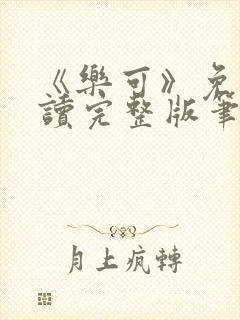 《樂可》免
讀完整版筆
月上瘋轉